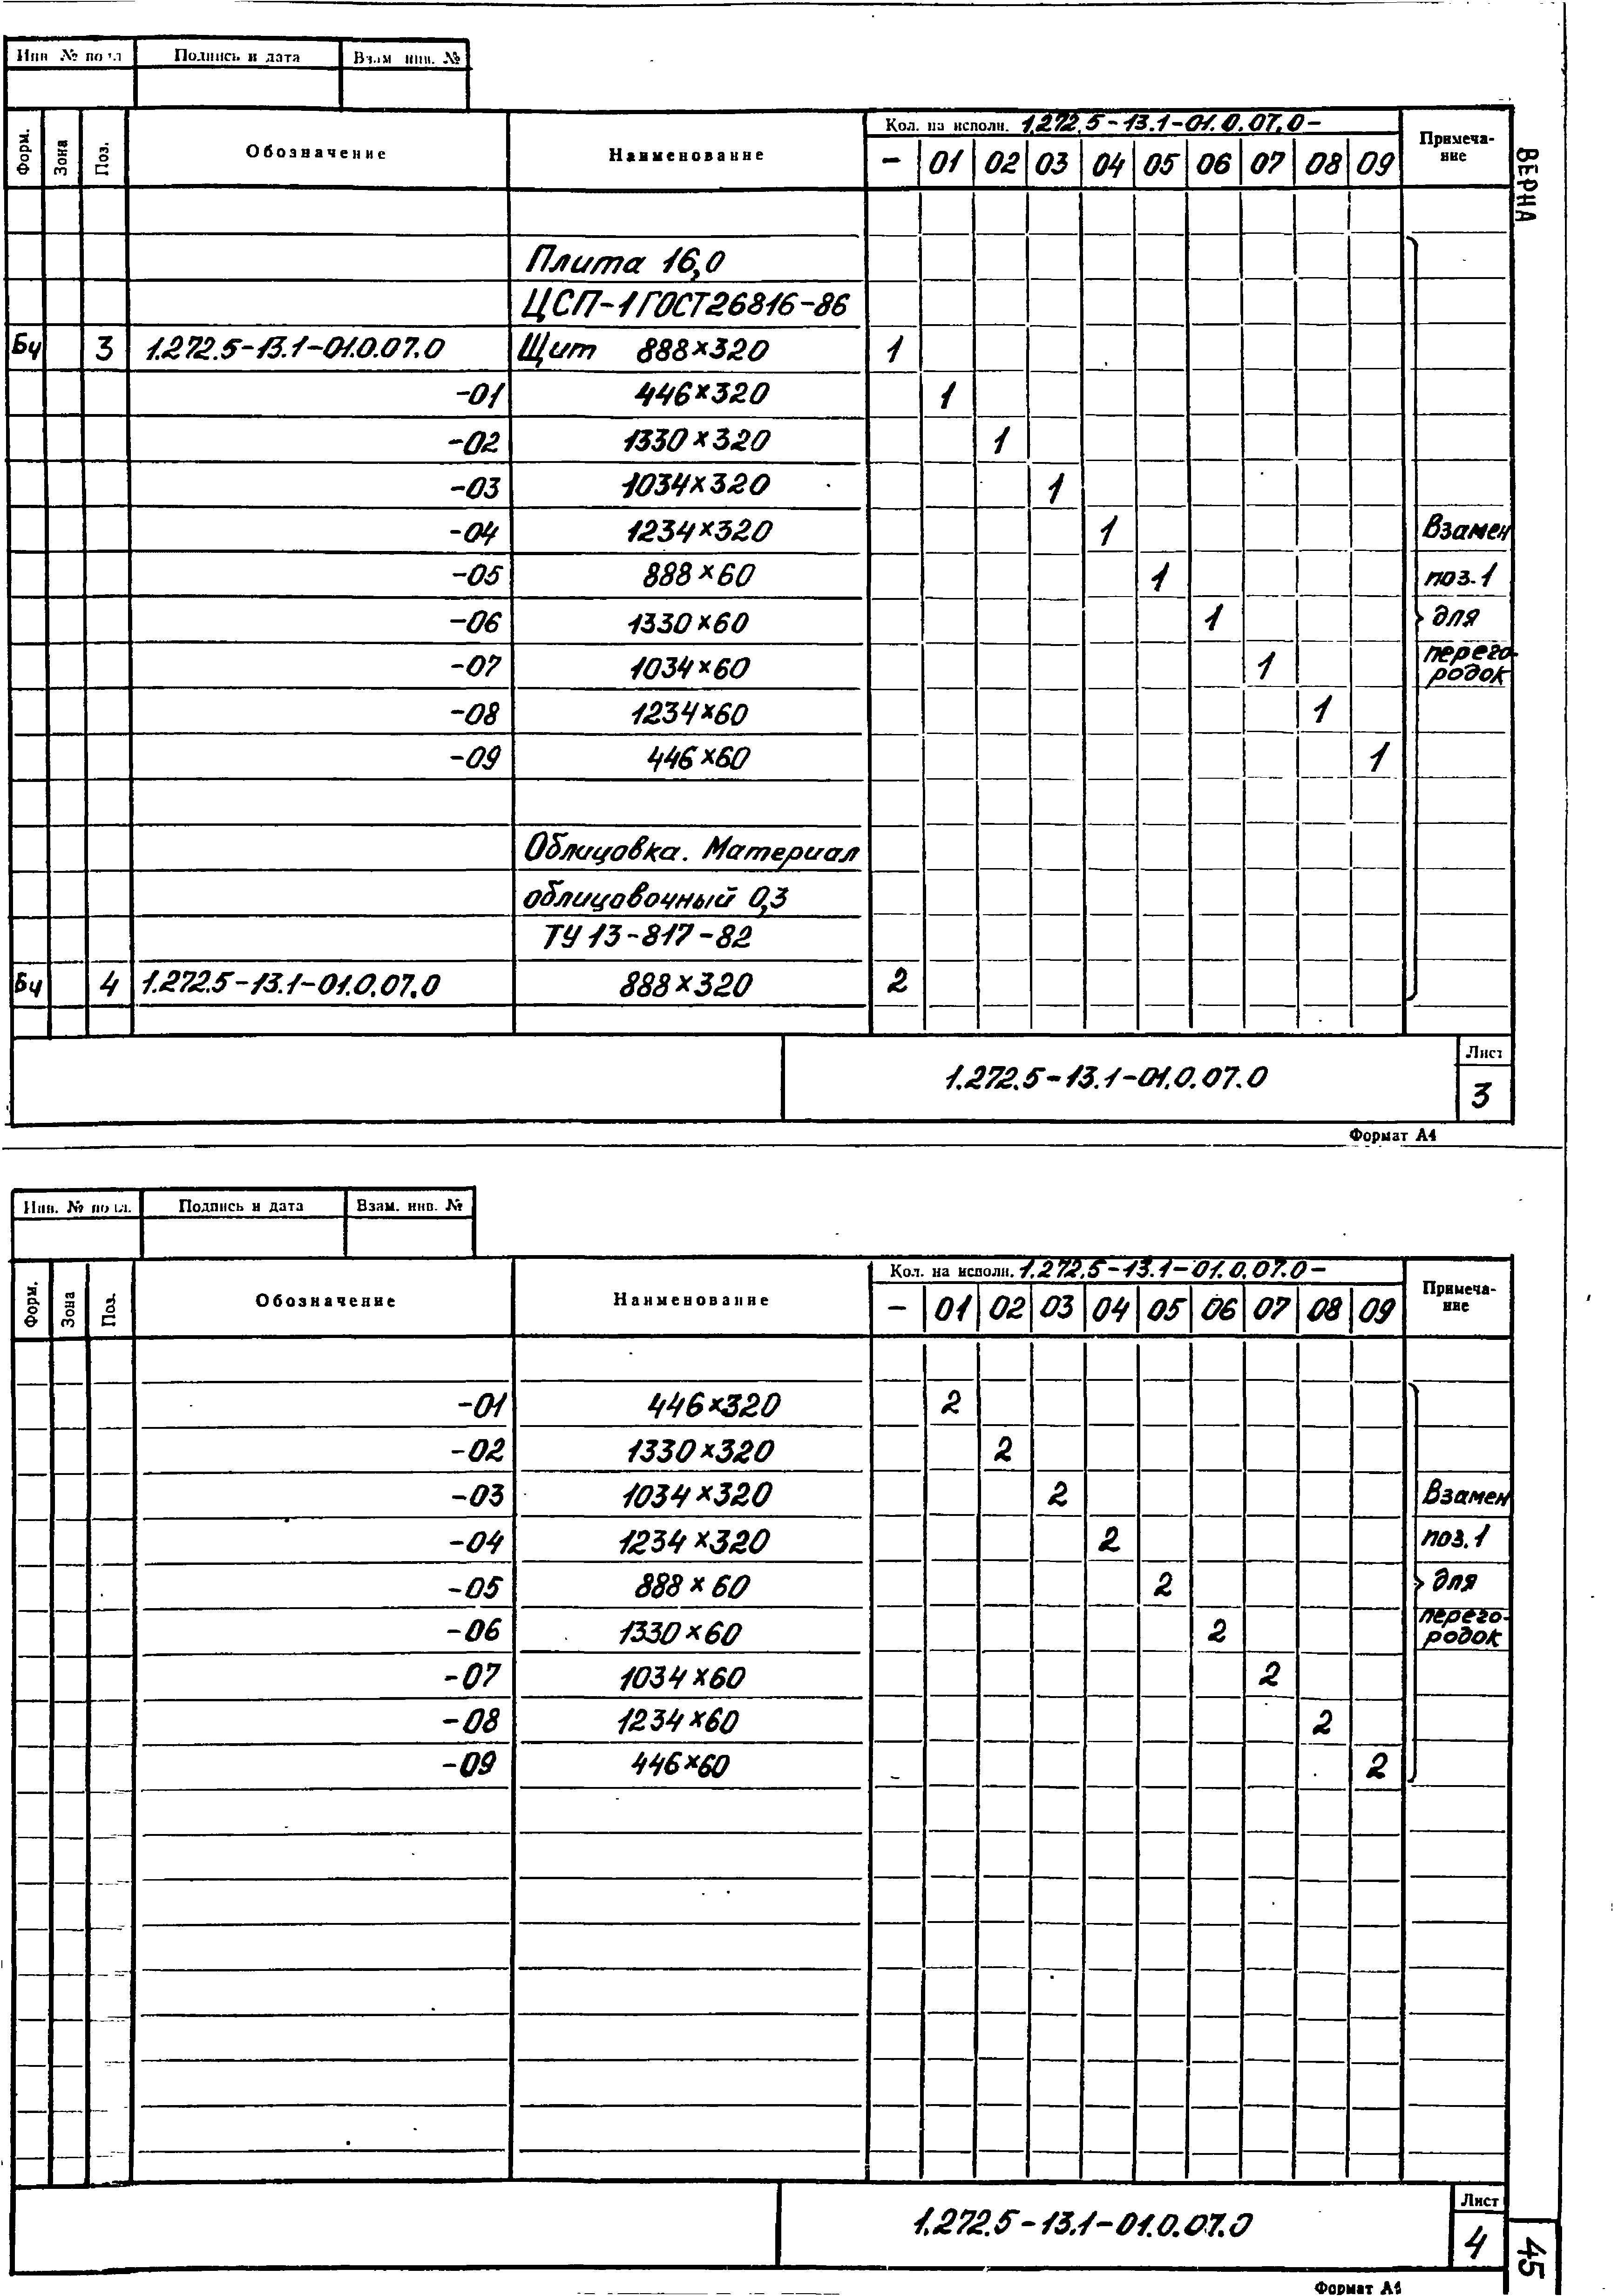 Инв. № подл. Подпись и дата Взам. инв. №
Форм. Зона Поз. Обозначение Наименование Кол. на исполн. 1.272.5-13.1-01.0.07.0- Примеча-
ние
- 01 02 03 04 05 06 07 08 09
ВЕРНА
Плита 16,0
ЦСП-1 ГОСТ 26816-86
Бч 3 1.272.5-13.1-01.0.07.0 Щит 888×320 1
-01 446×320 1
-02 1330×320 1
-03 1034×320 1
-04 1234×320 1 Взамен
-05 888×60 1 поз.1
-06 1330×60 1 для
-07 1034×60 1 перего-
родок
-08 1234×60 1
-09 446×60 1
Облицовка. Материал
облицовочный 0,3
ТУ 13-817-82
Бч 4 1.272.5-13.1-01.0.07.0 888×320 2
1.272.5-13.1-01.0.07.0 Лист
3
Формат А4
Инв. № подл. Подпись и дата Взам. инв. №
Форм. Зона Поз. Обозначение Наименование Кол. на исполн. 1.272.5-13.1-01.0.07.0- Примеча-
ние
- 01 02 03 04 05 06 07 08 09
-01 446×320 2
-02 1330×320 2
-03 1034×320 2 Взамен
-04 1234×320 2 поз.1
-05 888×60 2 для
-06 1330×60 2 перего-
родок
-07 1034×60 2
-08 1234×60 2
-09 446×60 2
1.272.5-13.1-01.0.07.0 Лист
4
45
Формат А4